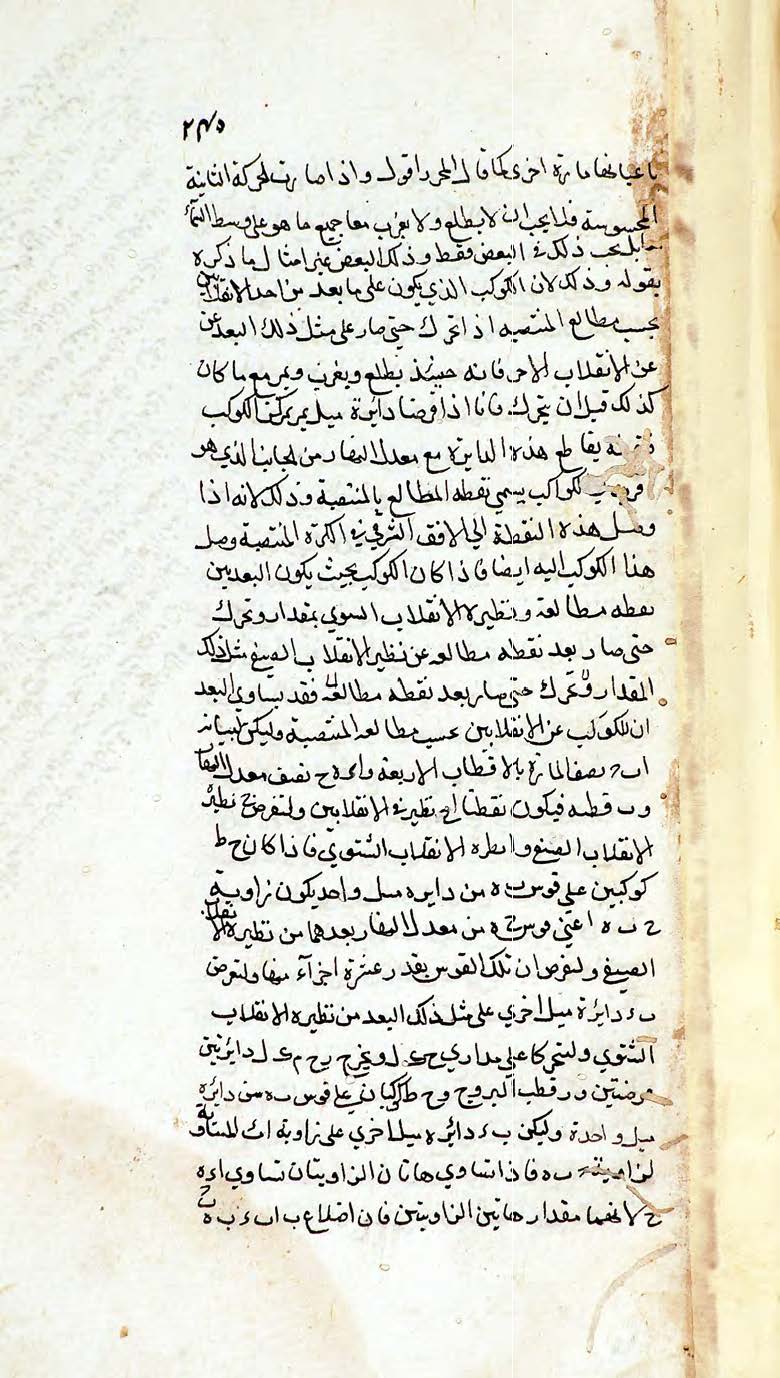 ٢٤٥
باعيانها مارة اخرى كما قال المحرر اقول واذا صارت الحركة الثانية
المحسوسة فلا يجب ان لا يطلع ولا يغرب معا جميع ما هو على وسط السماء
بل يجب ذلك في البعض فقط وذلك البعض عين امثال ما ذكره
بقوله وذلك لان الكوكب الذي يكون على ما بعد من احد الانقلابين
بحسب مطالع المنتصبه اذا تحرك حتى صار على مثل ذلك البعد عن
عن الانقلاب الاخر فانه حينئذ يطلع ويغرب ويمر مع ما كان
كذلك قبل ان يتحرك فانا اذا فرضنا دايرة ميل يمر بمركز الكوكب
يقاطع هذه الدايرة مع معدل النهار من الجانب الذي هو
الكواكب يسمى نقطه المطالع بالمنتصبة وذلك لانه اذا
وصل هذه النقطة الى الافق الشرقي في الكرة المنتصبة وصل
هذا الكوكب اليه ايضا فاذا كان الكوكب بحيث يكون البعد بين
نقطه مطالعه ونظيرة الانقلاب الستوي بمقدار وتحرك
حتى صار بعد نقطه مطالعه عن نظير الانقلاب الصيفي مثل ذلك
المقدار وتحرك حتى صار بعد نقطه مطالعه فقد يساوي البعد
ان للكوكب عن الانقلابين بحسب مطالعه المنتصبة وليكن لبيانه
اب نصف المارة بالاقطاب الاربعة و نصف معدل النهار
وب قطبه فيكون نقطتا نظيرة الانقلابين ولنفرض ج نظيرة
الانقلاب الصيفي و نظيره الانقلاب الشتوي فاذا كان ح ط
كوكبين على قوس ب ه من دايره ميل واحد يكون زاوية
ح ب ه اعني قوس ح ه من معدل النهار بعدهما من نظيرة الانقلاب
الصيفي ولنفرض ان تلك القوس بقدر عشرة اجزآء منها ولنفرض
ب ء دايرة ميل اخري على مثل ذلك البعد من نظيره الانقلاب
الشتوي وليتحركا على مداري ونخرج دايرتين
عرضتين و ر قطب البروج و ح ط كوكبان على قوس ب ه من دايره
ميل واحدة وليكن ب ء دائره ميل اخري على زاوية المساوية
لزاوية ب ه فاذا تساوي هاتان الزاويتان تساوي
لانهما مقدار هاتين الزاويتين فان اضلاع